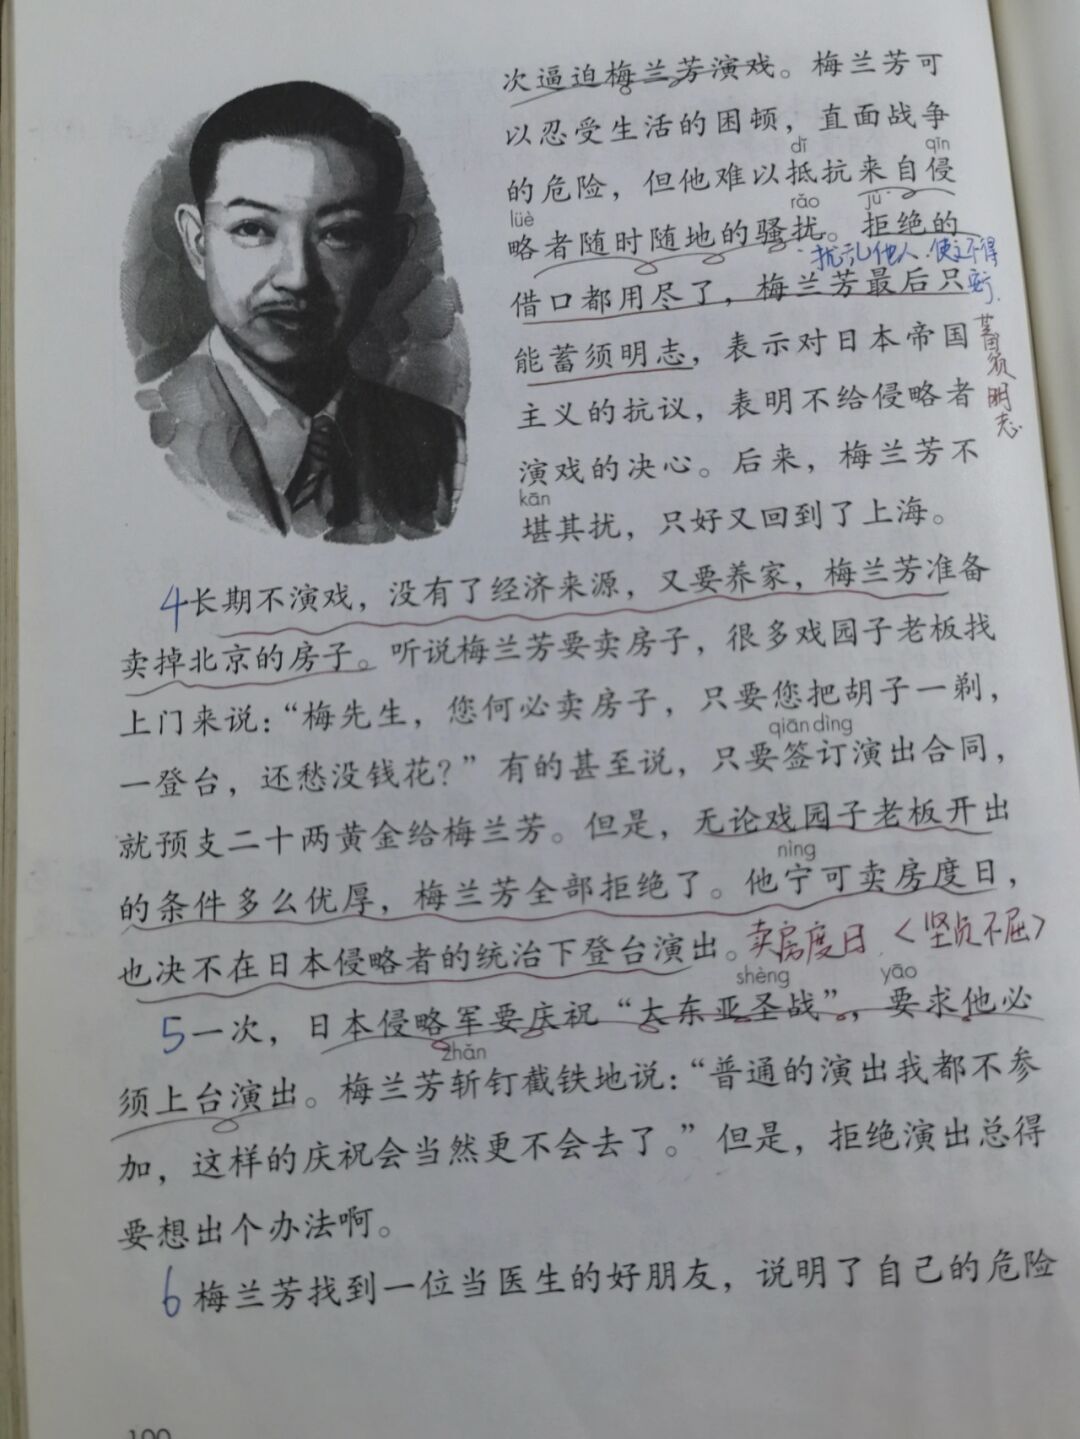 次逼迫梅兰芳演戏。梅兰芳可
以忍受生活的困顿，直面战争
dǐ qīn
的危险，但他难以抵抗来自侵
lüè rǎo jù
略者随时随地的骚扰。拒绝的
扰乱他人，使之不得安宁.
借口都用尽了，梅兰芳最后只
能蓄须明志，表示对日本帝国
蓄须明志
主义的抗议，表明不给侵略者
演戏的决心。后来，梅兰芳不
kān
堪其扰，只好又回到了上海。
4长期不演戏，没有了经济来源，又要养家，梅兰芳准备
卖掉北京的房子。听说梅兰芳要卖房子，很多戏园子老板找
上门来说：“梅先生，您何必卖房子，只要您把胡子一剃，
qiān dìng
一登台，还愁没钱花？”有的甚至说，只要签订演出合同，
就预支二十两黄金给梅兰芳。但是，无论戏园子老板开出
nìng
的条件多么优厚，梅兰芳全部拒绝了。他宁可卖房度日，
也决不在日本侵略者的统治下登台演出。卖房度日〈坚贞不屈〉
shèng yāo
5一次，日本侵略军要庆祝“大东亚圣战”，要求他必
zhǎn
须上台演出。梅兰芳斩钉截铁地说：“普通的演出我都不参
加，这样的庆祝会当然更不会去了。”但是，拒绝演出总得
要想出个办法啊。
6梅兰芳找到一位当医生的好朋友，说明了自己的危险
100